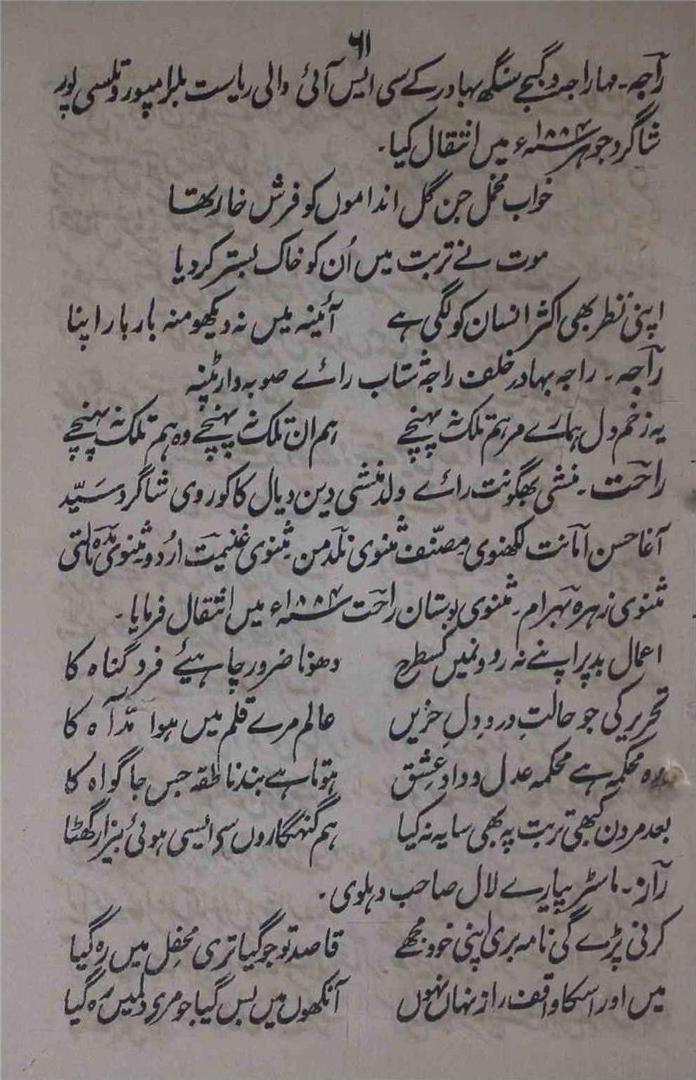 ۶۱
راجہ۔ مہاراجہ دگبجے سنگھ بہادر کے سی ایس آئی والی ریاست بلرامپور و تلسی پور
شاگرد جوہر ۱۸۸۲ء میں انتقال کیا۔
خواب مخمل جن گل انداموں کو فرش خار تھا
موت نے تربت میں اُن کو خاک بستر کر دیا
اپنی نظر بھی اکثر انسان کو لگی ہے آئینہ میں نہ دیکھو منہ بار بار اپنا
راجہ۔ راجہ بہادر خلف راجہ شتاب رائے صوبہ دار پٹنہ
یہ زخم دل ہمارے مرہم تلک نہ پہنچے ہم ان تلک نہ پہنچے وہ ہم تلک نہ پہنچے
راحت۔ منشی بھگونت رائے ولد منشی دین دیال کاکوروی شاگرد سیّد
آغا حسن امانت لکھنوی مصنّف مثنوی نلدمن مثنوی غنیمت اردو مثنوی مدہ مالتی
مثنوی زہرہ بہرام۔ مثنوی بوستان راحت ۱۸۸۲ء میں انتقال فرمایا۔
اعمال بد پر اپنے نہ رووٗں میں کسطرح دھونا ضرور چاہیے فرد گناہ کا
تحریر کی جو حالتِ درد دل حزیں عالم مرے قلم میں ہوا مدّ آہ کا
وہ محکمہ ہے محکمہ عدل و داد عشق ہوتا ہے بند ناطقہ جس جا گواہ کا
بعد مردن کبھی تربت پہ بھی سایہ نہ کیا ہم گنہگاروں سی ایسی ہوئی بیزار گھٹا
راز۔ ماسٹر پیارے لال صاحب دہلوی۔
کرنی پڑے گی نامہ بری اپنی خود مجھے قاصد تو جو گیا تری محفل میں رہ گیا
میں اور اسکا واقف راز نہاں نہوں آنکھوں میں بس گیا جو مری دلمیں رہ گیا